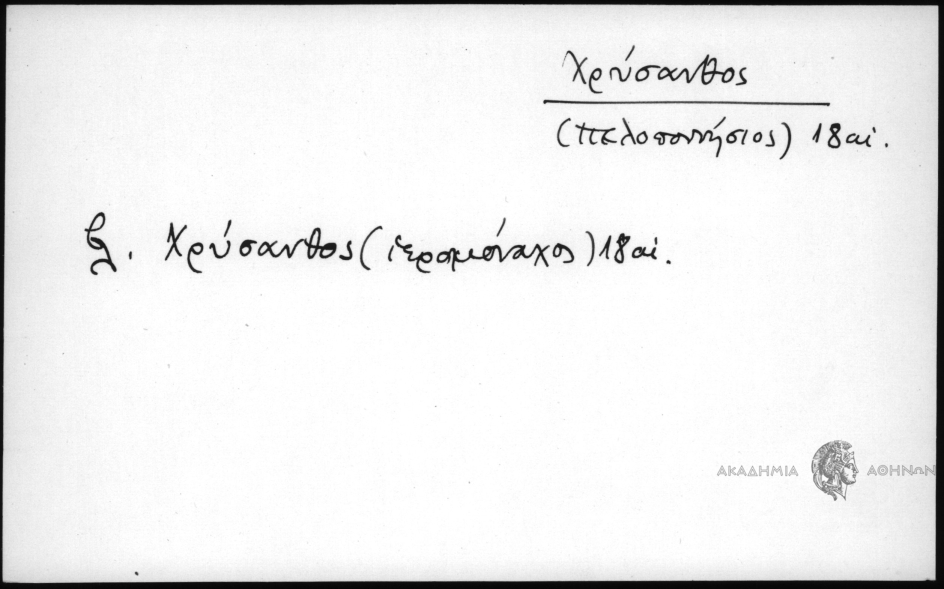 Χρύσανθος
(Πελοποννήσιος) 18 αἰ.
βλ. Χρύσανθος (ἱερομόναχος) 18 αἰ.
ΑΚΑΔΗΜΙΑ ΑΘΗΝΩΝ